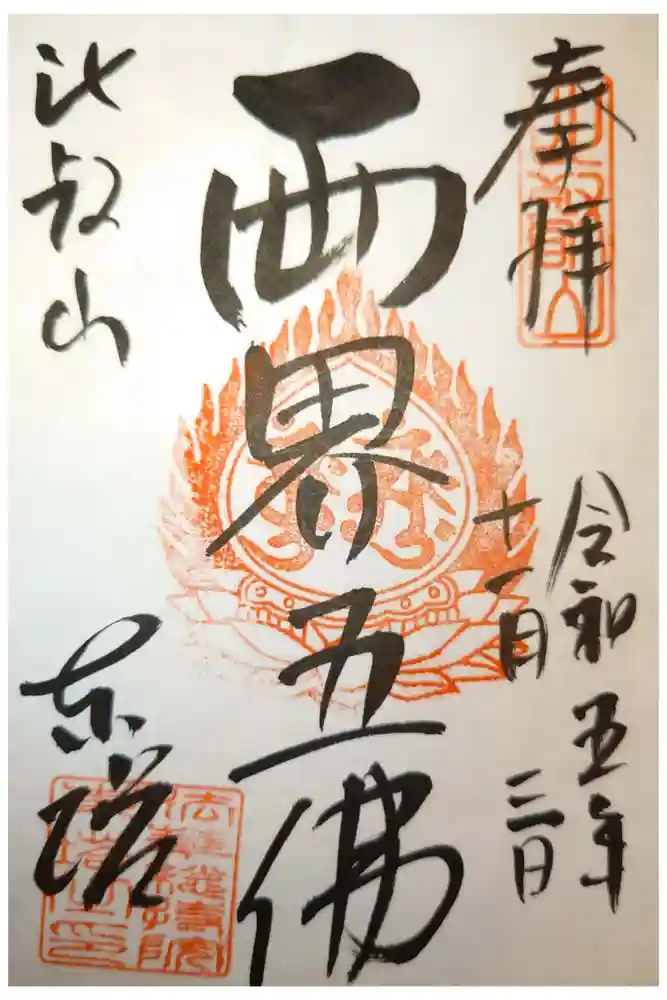 奉拝
令和五年
十一月三日
両界五佛
比叡山
東塔